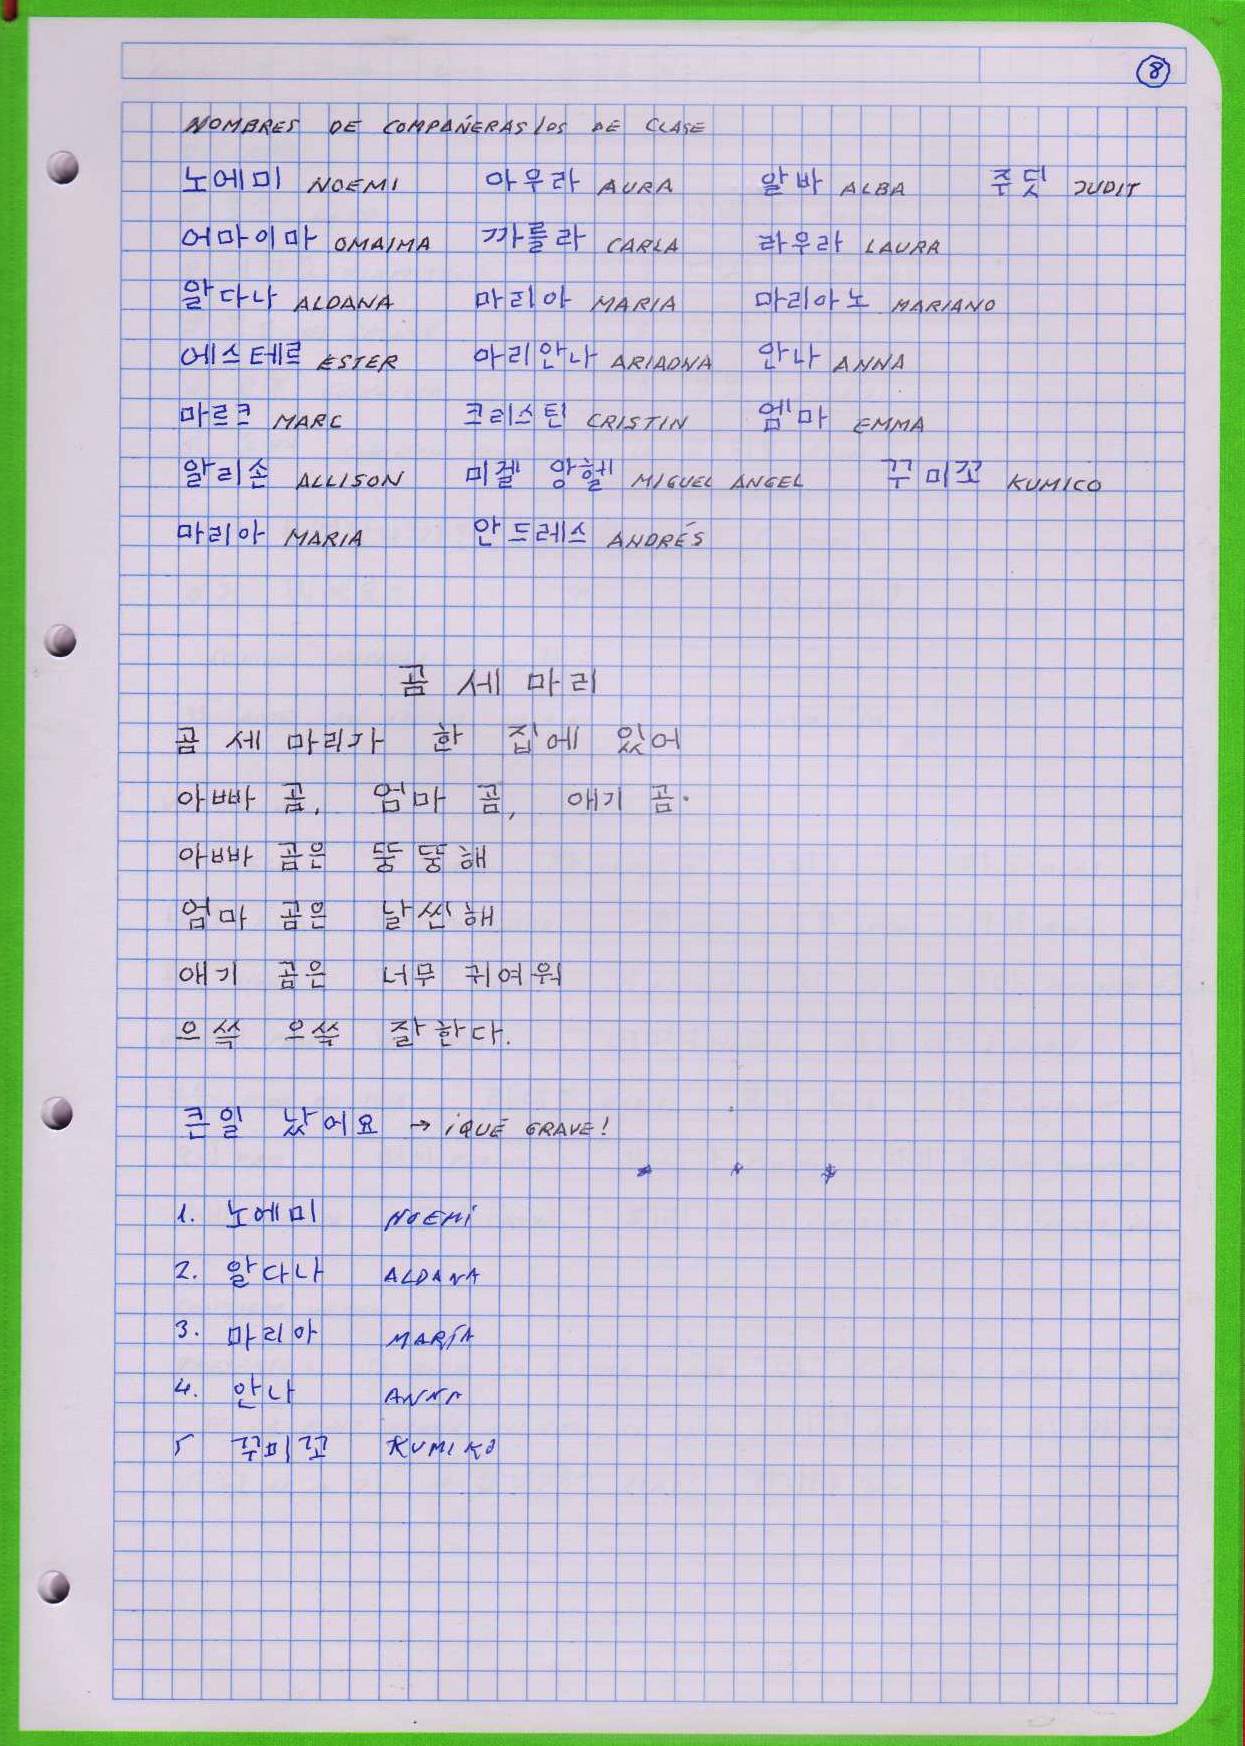 8
NOMBRES DE COMPAÑERAS/OS DE CLASE
노에미 NOEMI 아우라 AURA 알바 ALBA 주딧 JUDIT
어마이마 OMAIMA 까를라 CARLA 라우라 LAURA
알다나 ALDANA 마리아 MARIA 마리아노 MARIANO
에스테르 ESTER 아리안나 ARIADNA 안나 ANNA
마르크 MARC 크리스틴 CRISTIN 엠마 EMMA
알리손 ALLISON 미겔 앙헬 MIGUEL ANGEL 꾸미꼬 KUMICO
마리아 MARIA 안드레스 ANDRÉS
곰 세 마리
곰 세 마리가 한 집에 있어
아빠 곰, 엄마 곰, 애기 곰.
아빠 곰은 뚱뚱해
엄마 곰은 날씬해
애기 곰은 너무 귀여워
으쓱 으쓱 잘한다.
큰일 났어요 → ¡QUÉ GRAVE!
* * *
1. 노에미 NOEMÍ
2. 알다나 ALDANA
3. 마리아 MARÍA
4. 안나 ANNA
5 꾸미꼬 KUMIKO